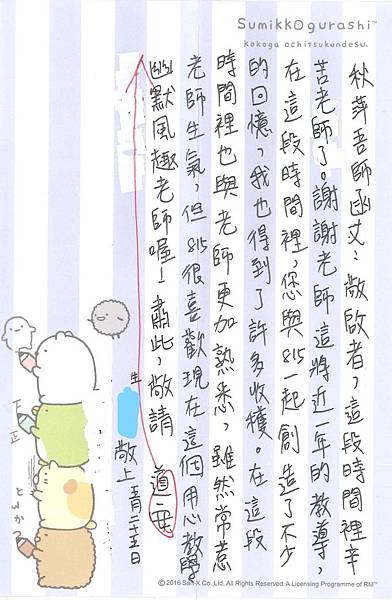 Sumikkogurashi™
kokoga ochitsukundesu.
秋萍吾師函丈：敬啟者，這段時間裡辛
苦老師了。謝謝老師這將近一年的教導，
在這段時間裡，您與815一起創造了不少
的回憶，我也得到了許多收穫。在這段
時間裡也與老師更加熟悉，雖然常惹
老師生氣，但815很喜歡現在這個用心教學
幽默風趣老師喔！肅此，敬請
道安
生
敬上 五月二十五日
とんかつ
©2016 San-X Co.,Ltd. All Rights Reserved. A Licensing Programme of RM™